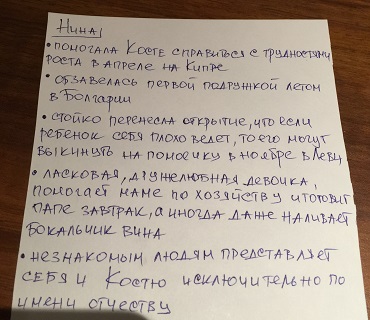 Нина
• помогала Косте справиться с трудностями
роста в апреле на Кипре
• обзавелась первой подружкой летом
в Болгарии
• стойко перенесла открытие, что если
ребенок себя плохо ведет, то его могут
выкинуть на помойку в ноябре в Леви
• ласковая, дружелюбная девочка,
помогает маме по хозяйству и готовит
папе завтрак, а иногда даже наливает
бокальчик вина
• незнакомым людям представляет
себя и Костю исключительно по
имени отчеству